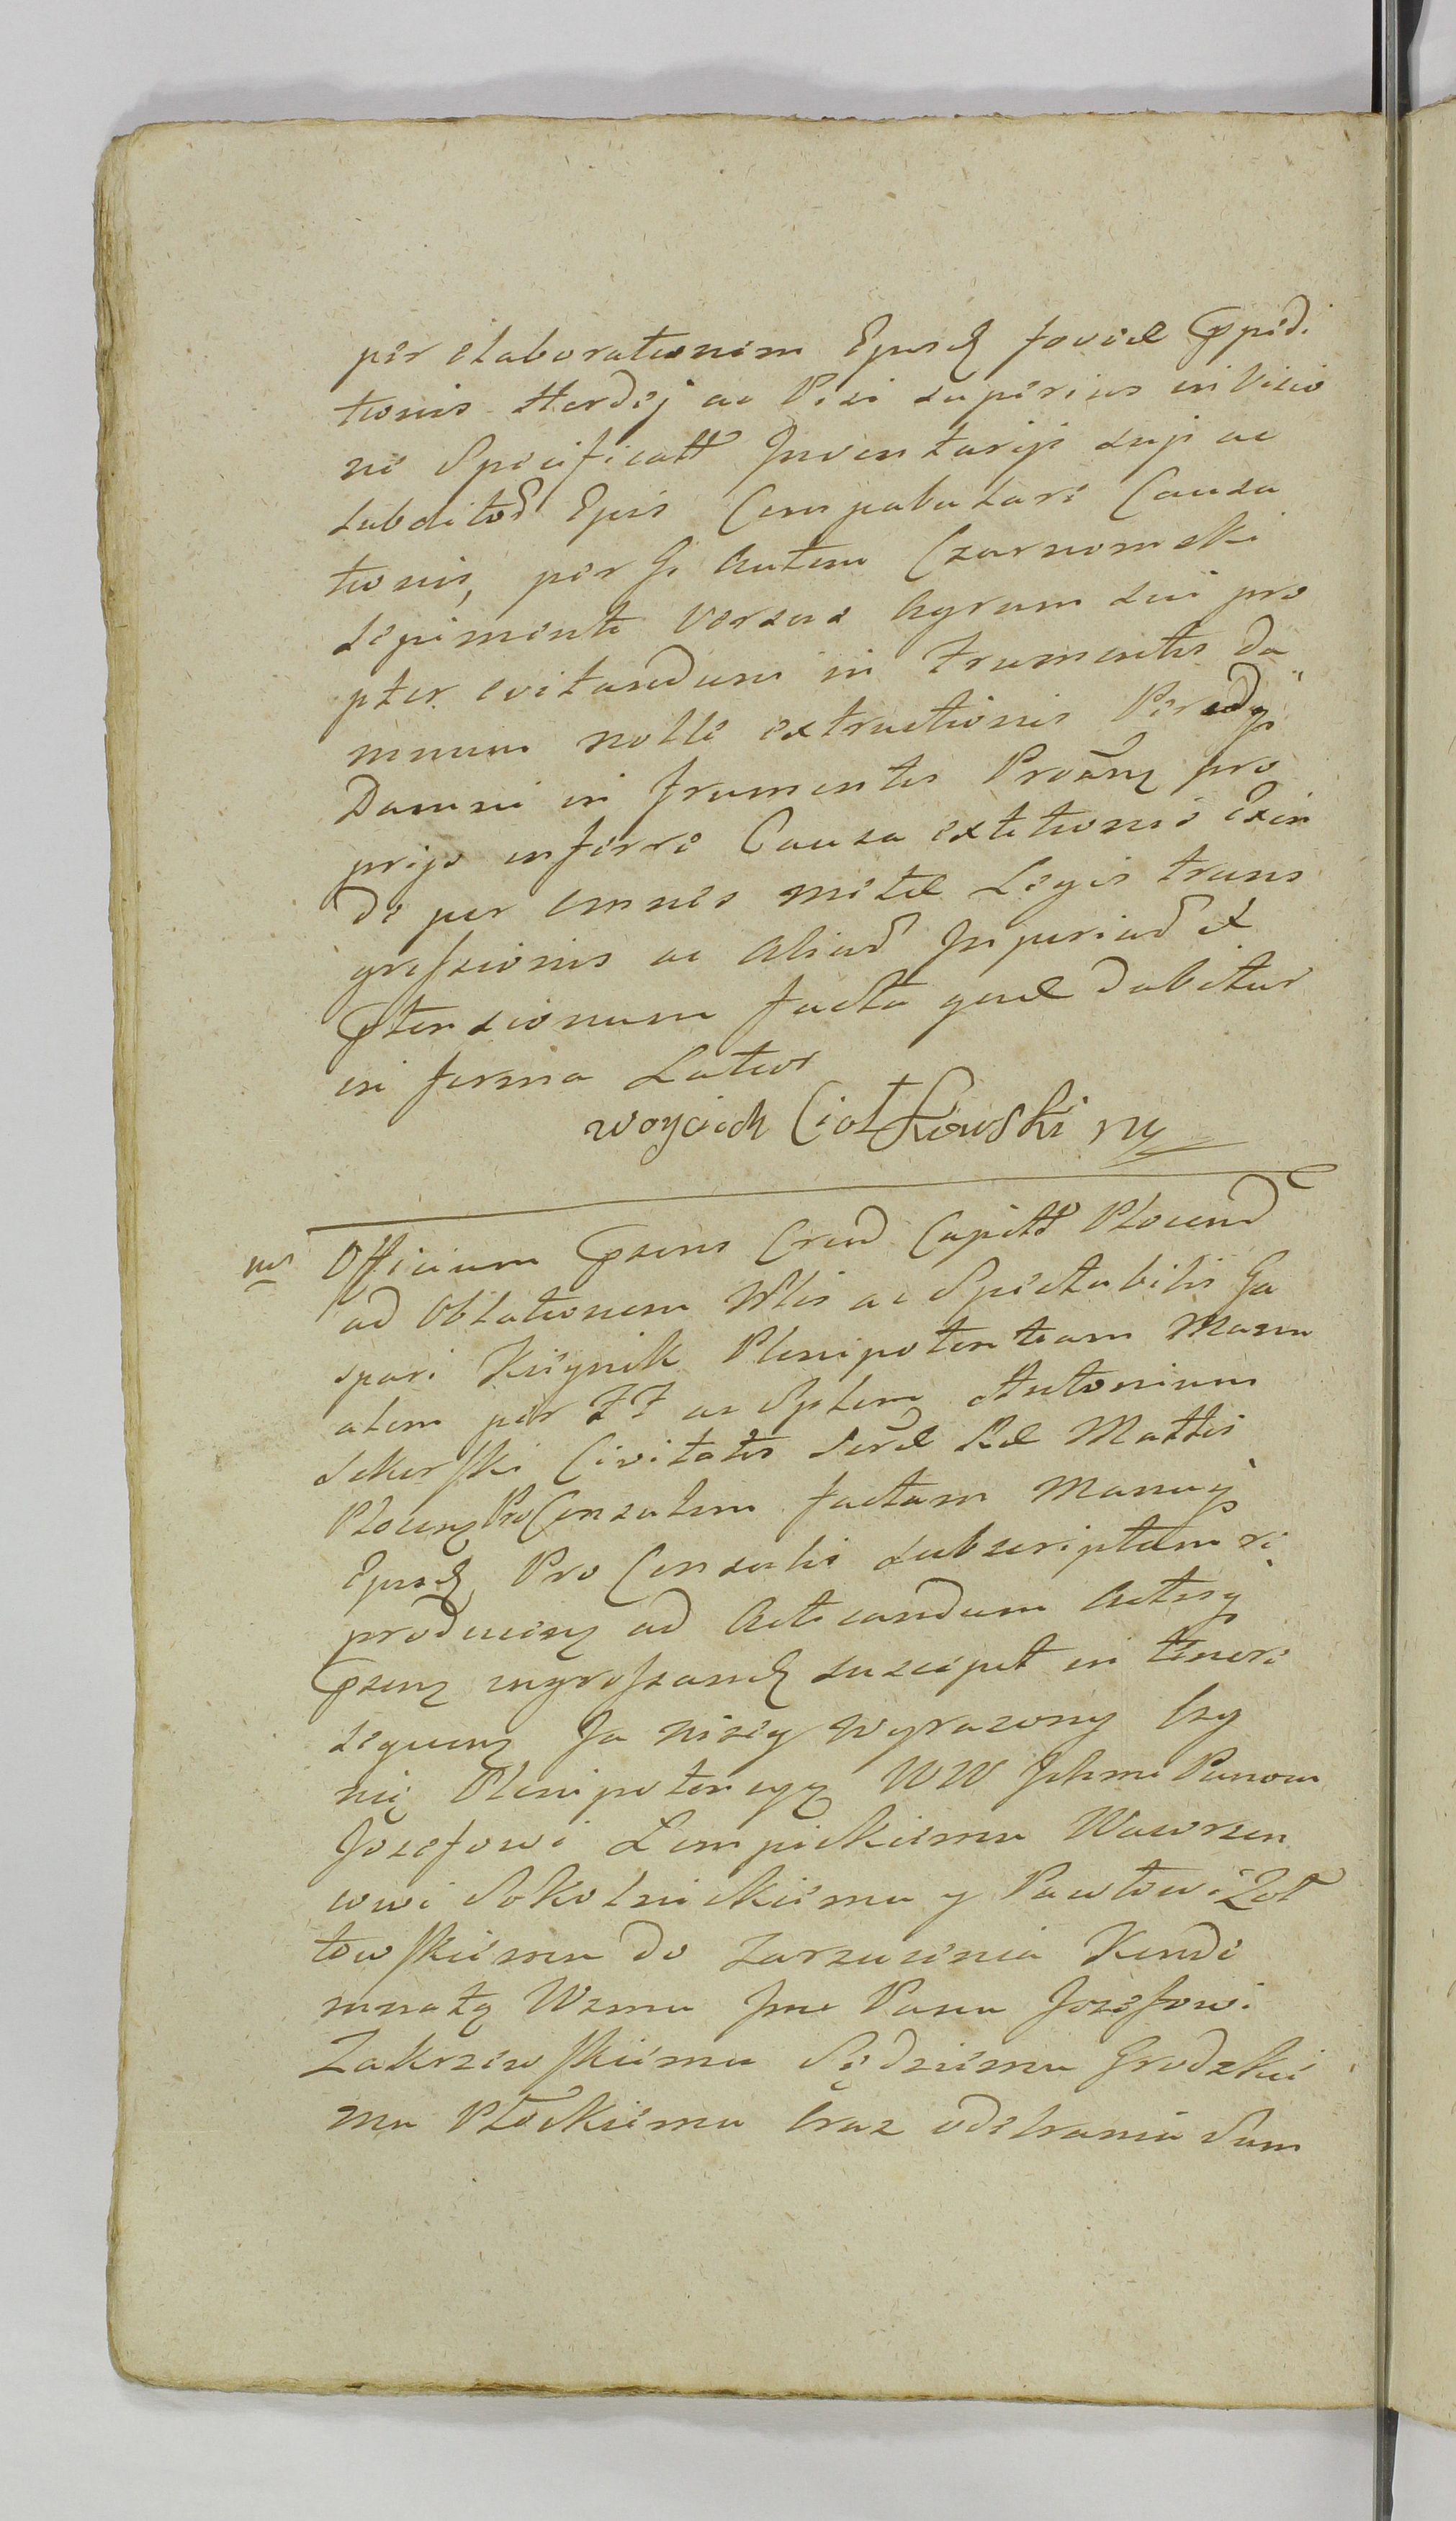 per elaborationem Ejusd fovae Exped
tionis Hordej ac Pisi superius in Visio
ne Specificatt Inventarijs suj ac
subditor Ejus Compabulari Causa
tionis, per G. Autem Czarnomski
sepimenta versus Agrum sui pro
pter evitandum in frumentis da
mnum nolle extructionis Per
Damni in frumentis Proang pro
prijs inferre Causa extitionis Exin
de per omnes metae Legis trans
gressionis ac Aliar Injuriar et
Ptensionum facta quae dabitur
in forma Latior
Woyciech Ciotkowski mp
Officium Psens Crend Capitt Plocen
ad Oblationem Nblis ac Spectabilis Ga
spari Kieynik Plenipotentiam Manu
alem per FF ac Sptem Antonium
Sekurski Civitatis Sere Rae Mattis
Plocen ProConsulem factam Manuq
Ejusd Pro Consulis subscriptam re
producen ad Acticandum Actisq
Psens ingrossand suscepit in tenore
sequen Ja niżey wyrazony Czy
nię Plenipotencyą WW Ichmc Panom
Jozefowi Lempickiemu Wawrzen
cowi Sokolnickiemu y Pawłowi Zoł
towskiemu do zarzucenia Konde
mnatę Wzmu Jmc Panu Jozefowi
Zakrzewskiemu Sędziemu Grodzkie
mu Płockiemu Oraz odebrania Sum